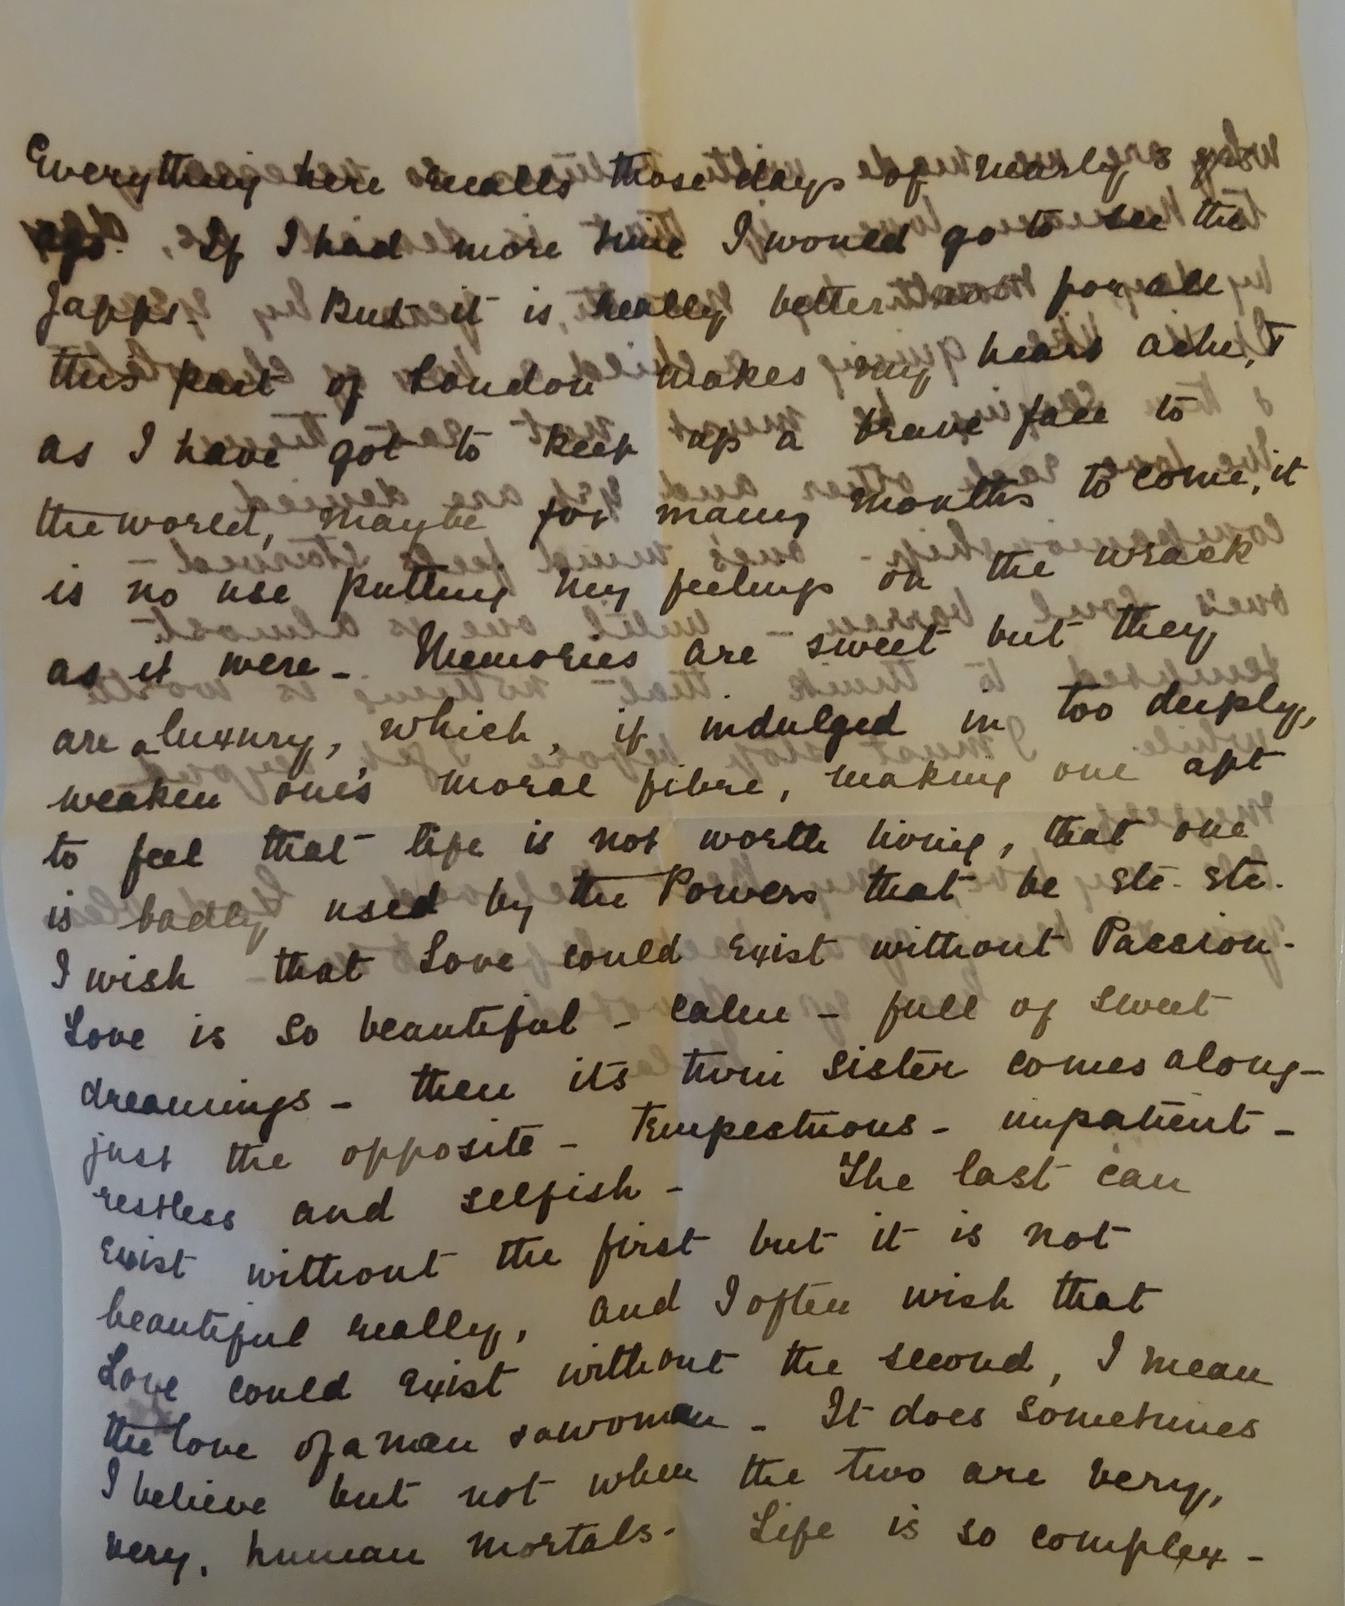 Everything here recalls those days of nearly 8 yrs
ago. If I had more time I would go to see the
Japps. But it is really better not for all
this part of London makes my heart ache, &
as I have got to keep up a brave face to
the world, maybe for many months to come, it
is no use putting my feelings on the wrack
as it were - Memories are sweet but they
are a luxury, which, if indulged in too deeply,
weaken one's moral fibre, making one apt
to feel that life is not worth living, that one
is badly used by the Powers that be etc. etc.
I wish that Love could exist without Passion -
Love is so beautiful - calm - full of sweet
dreamings - then its twin sister comes along -
just the opposite - tempestuous - impatient -
restless and selfish - The last can
exist without the first but it is not
beautiful really, and I often wish that
Love could exist without the second, I mean
the love of a man & a woman - It does sometimes
I believe but not when the two are very,
very, human mortals - Life is so complex -